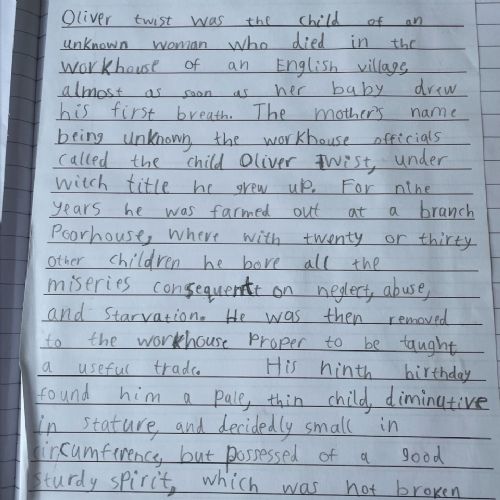 Oliver twist was the child of an
unknown woman who died in the
workhouse of an English village,
almost as soon as her baby drew
his first breath. The mother's name
being unknown, the workhouse officials
called the child Oliver Twist, under
witch title he grew up. For nine
years he was farmed out at a branch
Poorhouse, where with twenty or thirty
other children he bore all the
miseries consequent on neglect, abuse,
and starvation. He was then removed
to the workhouse proper to be taught
a useful trade. His ninth birthday
found him a pale, thin child, diminutive
in stature, and decidedly small in
circumference, but possessed of a good
sturdy spirit, which was not broken